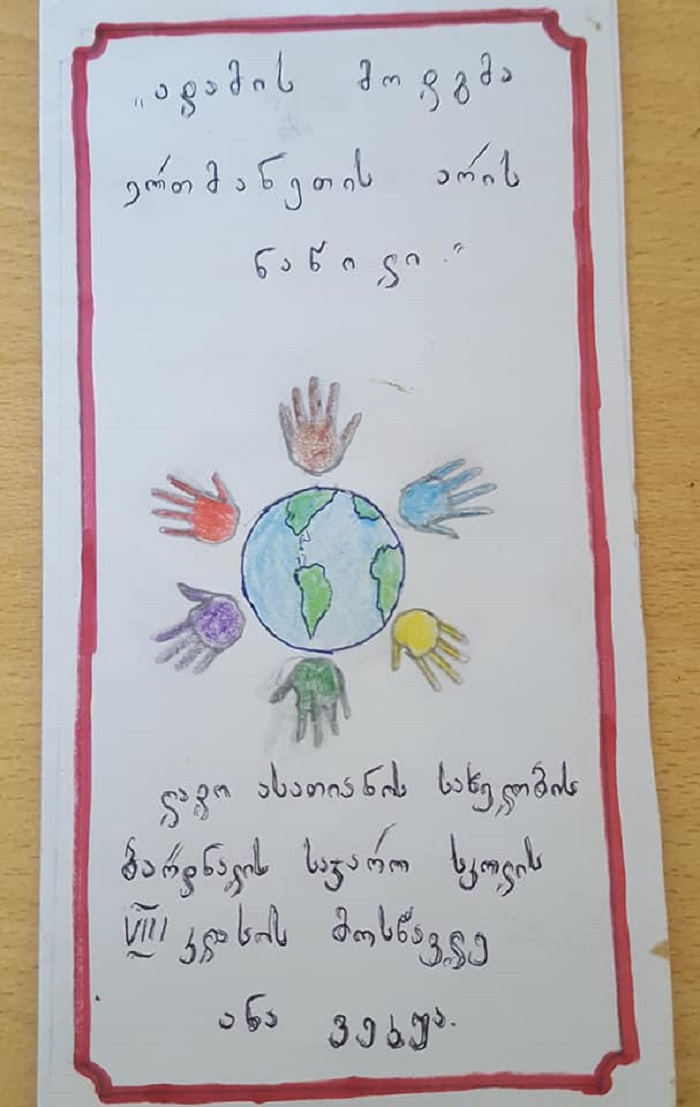 „ადამის მოდგმა
ერთმანეთის არის
ნაწილი.“
ლადო ასათიანის სახელობის
ბარდნალის საჯარო სკოლის
VIII კლასის მოსწავლე
ანა